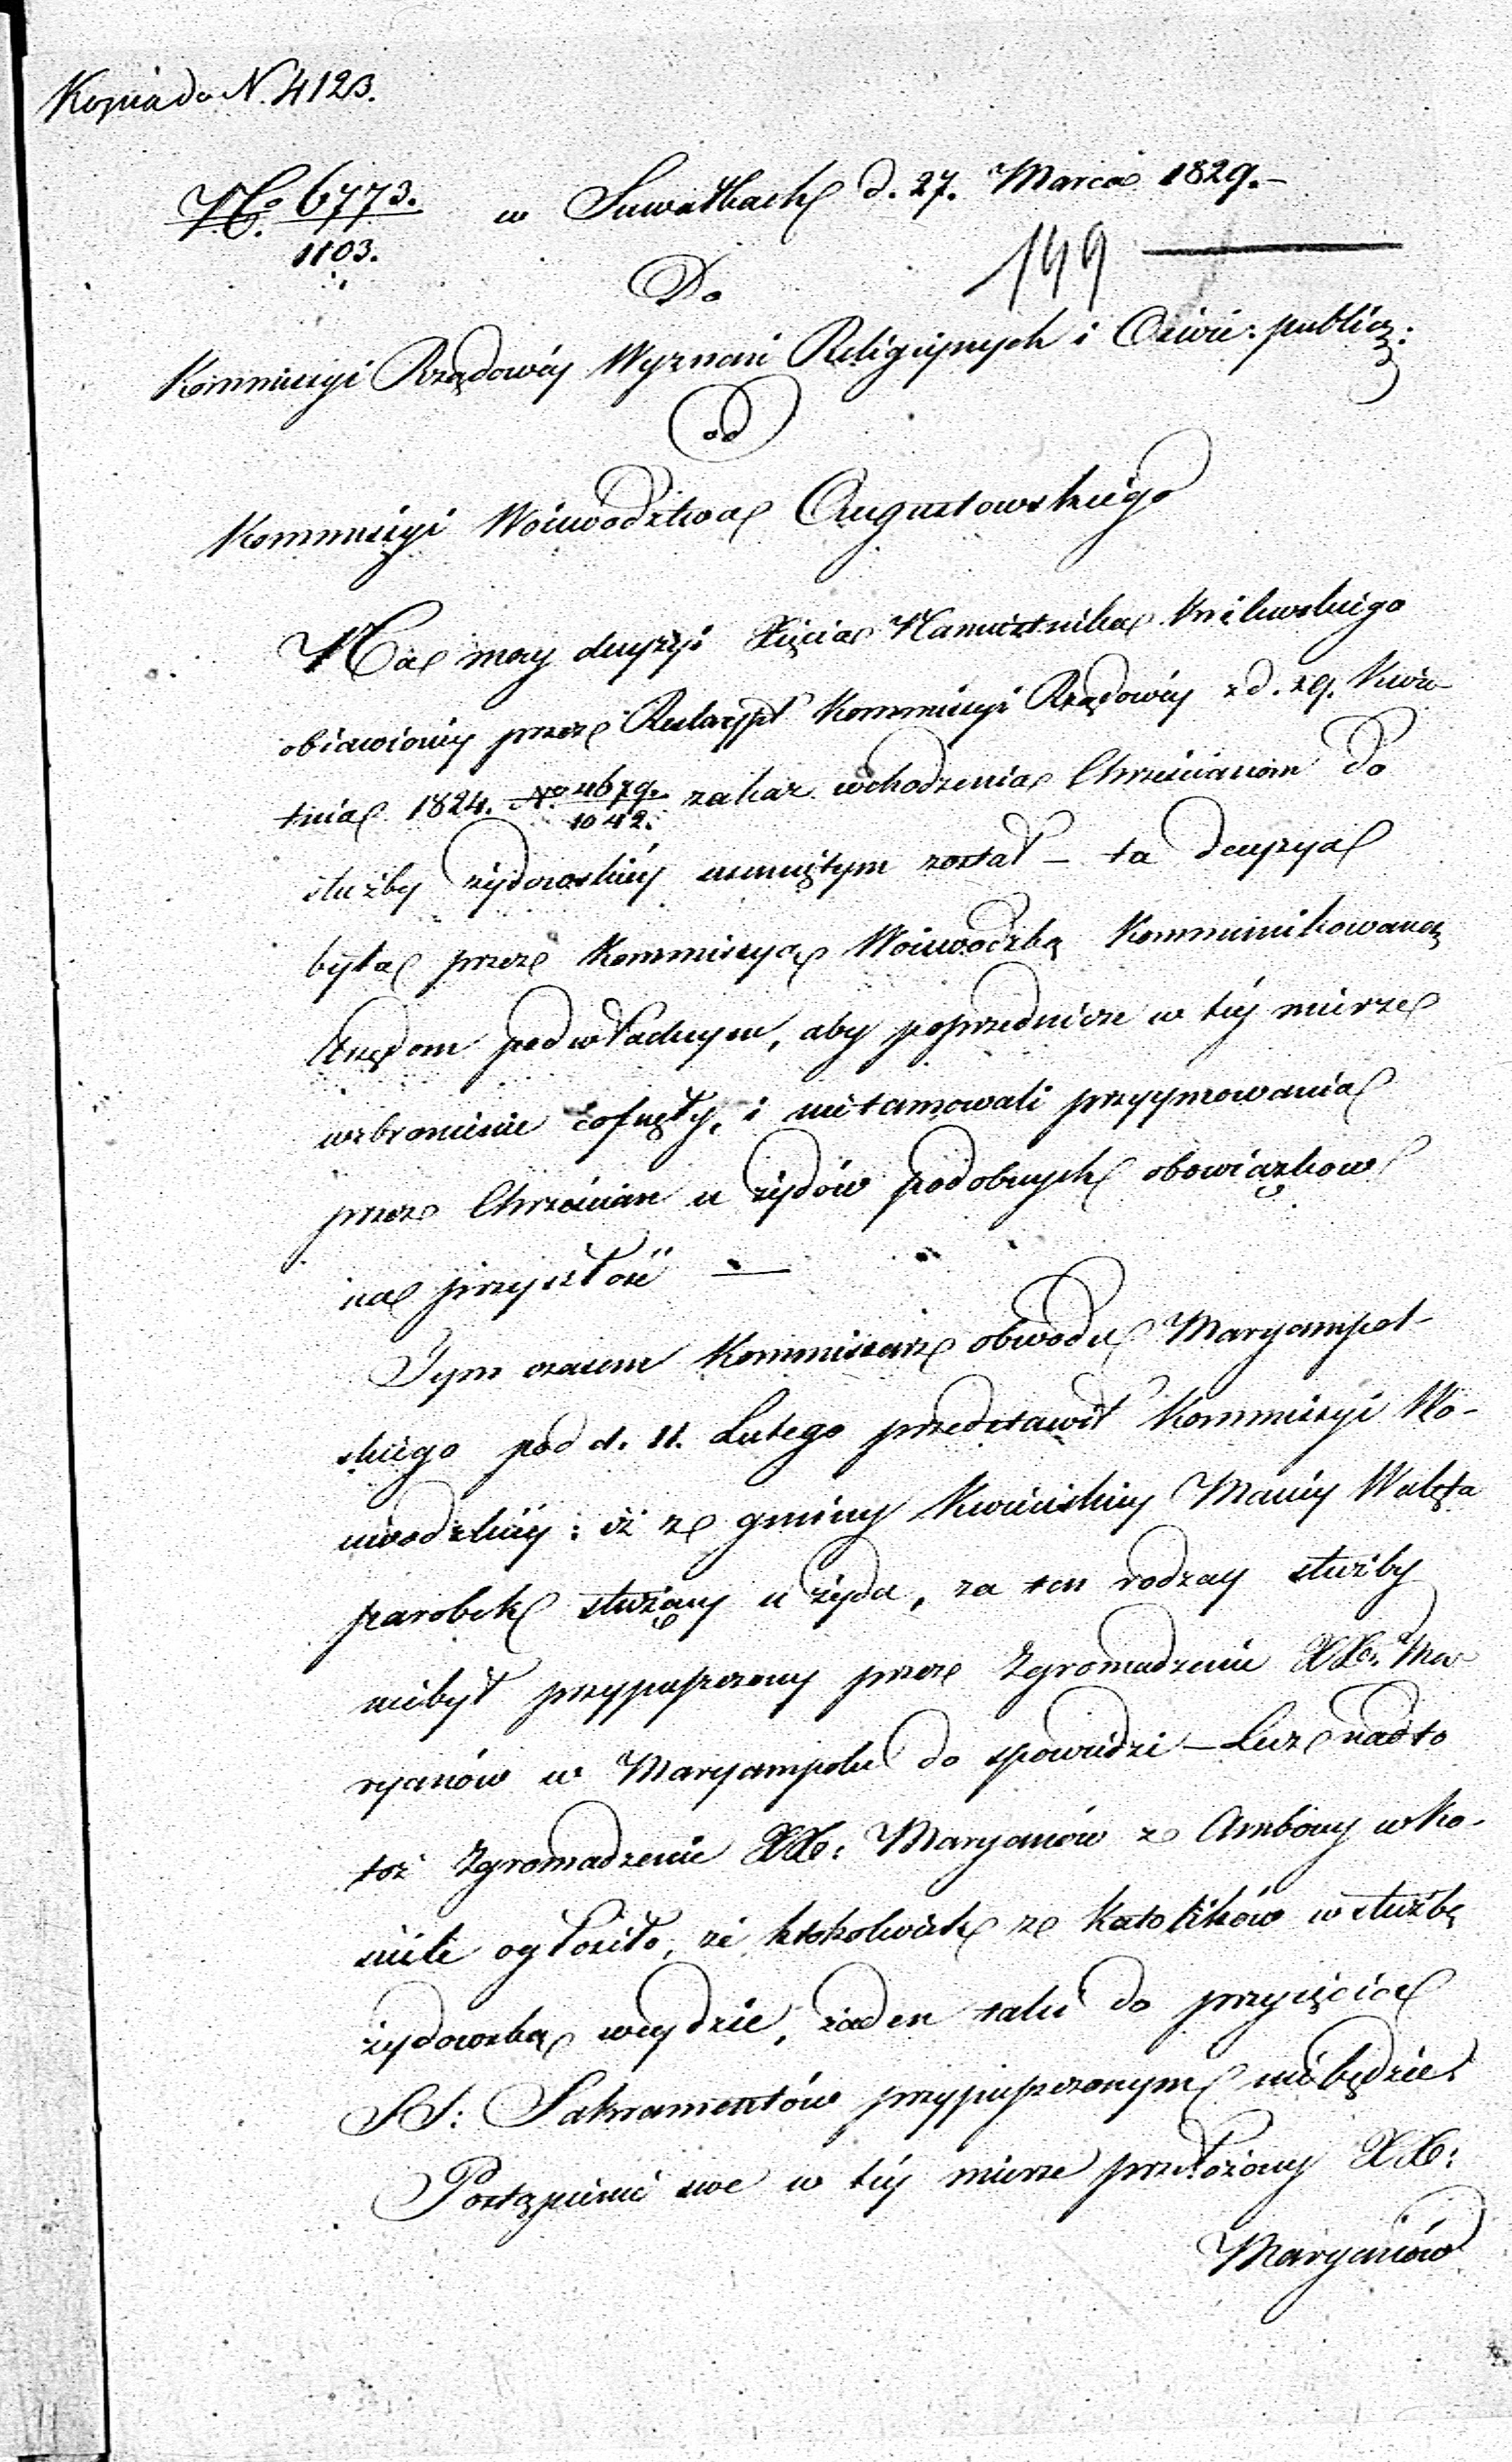 Kopia do N. 4123.
No 6773.
1103.
w Suwałkach d. 27. Marca 1829.-
149
Do
Kommissyi Rządowéy Wyznań Religiynych i Oświe: publicz:
od
Kommissyi Woiewództwa Augustowskiego
Na mocy decyzyi Xięcia Namiestnika Królewskiego
obiawionéy przez Reskrypt Kommissyi Rządowéy z d. 29. Kwie-
tnia 1824. No 4679. zakaz wchodzenia Chrześcianom do
1042.
służby żydowskiéy usuniętym został – ta decyzya
była przez Kommissyą Woiewódzką Kommunikowaną
Urzędom podwładnym, aby poprzednicze w téy mierze
wzbronienie cofnęły, i nietamowali przyymowania
przez Chrześcian u żydów podobnych obowiązków
na przyszłość —
Tym czasem Kommissarz obwodu Maryampol-
skiego pod d. 11. Lutego przedstawił Kommissyi Wo-
iewódzkiéy: iż z gminy Kwieciskiey Maciéy Walęta
parobek służący u żyda, za ten rodzay służby
niebył przypuszczony przez Zgromadzenie XX: Ma-
ryanów w Maryampolu do spowiedzi – Lecz nadto
toż Zgromadzenie XX: Maryanów z Ambony w ko-
ściele ogłosiło, że ktokolwiek ze Katolików w służbę
żydowską weydzie, żaden taki do przyięcia
SS: Sakramentów przypuszczonym niebędzie.
Postąpienie swe w téy mierze przełożony XX:
Maryanów